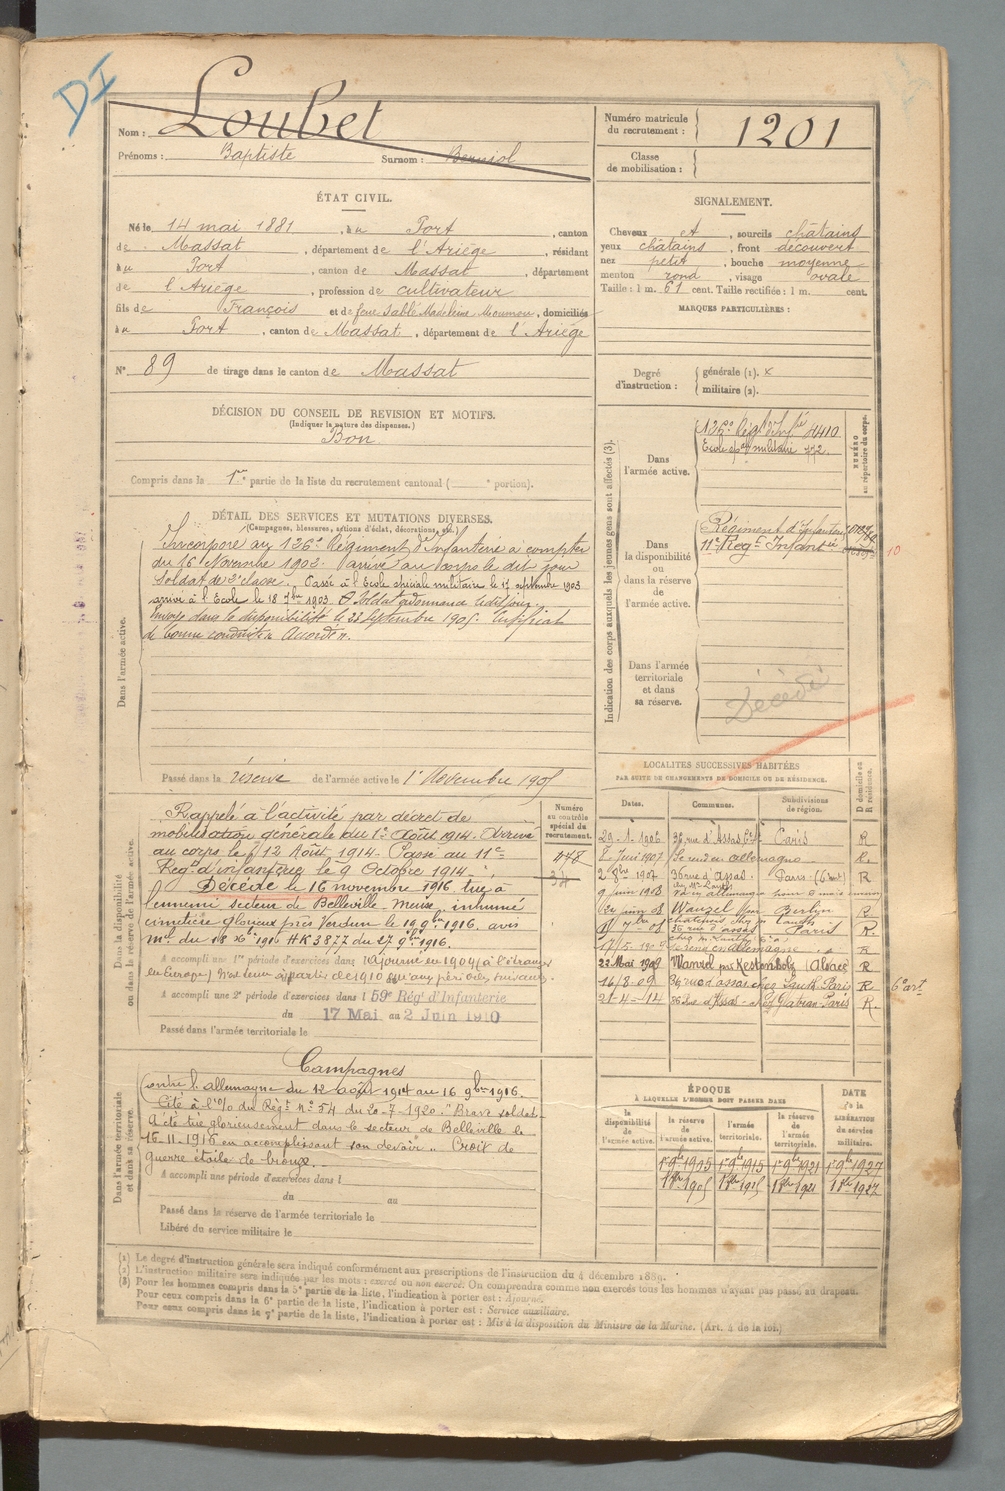 DI
Nom : Loubet
Prénoms : Baptiste Surnom : Berniol
Numéro matricule du recrutement : 1201
Classe de mobilisation :
ÉTAT CIVIL.
Né le 14 mai 1881, à Port, canton
de Massat, département de l'Ariège, résidant
à Port, canton de Massat, département
de l'Ariège, profession de cultivateur
fils de François et de feue Sablé Madeleine, domiciliés
à Port, canton de Massat, département de l'Ariège
N° 89 de tirage dans le canton de Massat
SIGNALEMENT.
Cheveux et, sourcils châtains
yeux châtains, front découvert
nez petit, bouche moyenne
menton rond, visage ovale
Taille : 1 m. 61 cent. Taille rectifiée : 1 m. cent.
MARQUES PARTICULIÈRES :
Degré d'instruction : générale (1). x
militaire (2).
DÉCISION DU CONSEIL DE REVISION ET MOTIFS.
(Indiquer la nature des dispenses.)
Bon
Compris dans la 1re partie de la liste du recrutement cantonal ( e portion).
Indication des corps auxquels les jeunes gens sont affectés (3).
NUMÉRO au répertoire du corps.
Dans l'armée active.
126e Régt d'Inf ie 4410
Ecole spéle militaire 772.
Dans la disponibilité ou dans la réserve de l'armée active.
Régiment d'Infanterie
11e Regt Infant ie
10
Dans l'armée territoriale et dans sa réserve.
Décédé
DÉTAIL DES SERVICES ET MUTATIONS DIVERSES.
(Campagnes, blessures, actions d'éclat, décorations, etc.)
Dans l'armée active.
Incorporé au 126e Régiment d'Infanterie à compter
du 16 Novembre 1902. Arrivé au corps le dit jour
Soldat de 2e classe. Passé à l'Ecole spéciale militaire le 17 septembre 1903
arrivé à l'Ecole le 18 7bre 1903. Soldat ordonnance ledit jour.
Envoyé dans la disponibilité le 23 Septembre 1905. Certificat
de bonne conduite « Accordé ».
Passé dans la réserve de l'armée active le 1er Novembre 1905
Dans la disponibilité ou dans la réserve de l'armée active.
Numéro au contrôle spécial du recrutement.
448
Rappelé à l'activité par décret de
mobilisation générale du 1er Août 1914. Arrivé
au corps le 12 Août 1914. Passé au 11e
Regt d'infanterie le 9 Octobre 1914.
Décédé le 16 novembre 1916 tué à
l'ennemi secteur de Belleville Meuse, inhumé
cimetière glorieux près Verdun le 16 9bre 1916. avis
mel du 18 Xbre 1916 HK 3877 du 27 9bre 1916.
A accompli une 1re période d'exercices dans l Ajourné en 1904 (à l'étranger
A accompli une 2e période d'exercices dans l 59e Rég' d'Infanterie
du 17 Mai au 2 Juin 1910
Passé dans l'armée territoriale le
LOCALITÉS SUCCESSIVES HABITÉES
PAR SUITE DE CHANGEMENTS DE DOMICILE OU DE RÉSIDENCE.
Dates. Communes. Subdivisions de région. D domicile ou R résidence.
29.1.1906 36 rue d'Assas Paris R
8 Juin 1907 Se rend en Allemagne R.
2 8bre 1907 36 rue d'Assas. Paris (6e art) R
Wanzel Berlin R
36 rue d'assas Paris R.
17/5-1909 se rend en Allemagne R
22 Mai 1909 Wanzel par Kestenholz (Alsace) R
16/8-09 36 rue d'assas chez Paris R. 6e art
21-4-14 86 Rue d'Assas Paris R.
Dans l'armée territoriale et dans sa réserve.
Campagnes
Contre l'allemagne du 12 août 1914 au 16 9bre 1916.
Cité à l'o/o du Régt n° 54 du 20-7-1920. "Brave soldat
A été tué glorieusement dans le secteur de Belleville le
16-11-1916 en accomplissant son devoir". Croix de
guerre étoile de bronze.
A accompli une période d'exercices dans l
du au
Passé dans la réserve de l'armée territoriale le
Libéré du service militaire le
ÉPOQUE
À LAQUELLE L'HOMME DOIT PASSER DANS
DATE de la LIBÉRATION du service militaire.
la disponibilité de l'armée active. la réserve de l'armée active. l'armée territoriale. la réserve de l'armée territoriale.
1er 9bre 1905 1er 9bre 1915 1er 9bre 1921 1er 9bre 1927
1er 9bre 1905 1er 9bre 1915 1er 9bre 1921 1er 9bre 1927
(1) Le degré d'instruction générale sera indiqué conformément aux prescriptions de l'instruction du 4 décembre 1889.
(2) L'instruction militaire sera indiquée par les mots : exercé ou non exercé. On comprendra comme non exercés tous les hommes n'ayant pas passé au drapeau.
(3) Pour les hommes compris dans la 5e partie de la liste, l'indication à porter est : Ajourné.
Pour ceux compris dans la 6e partie de la liste, l'indication à porter est : Service auxiliaire.
Pour ceux compris dans la 7e partie de la liste, l'indication à porter est : Mis à la disposition du Ministre de la Marine. (Art. 4 de la loi.)